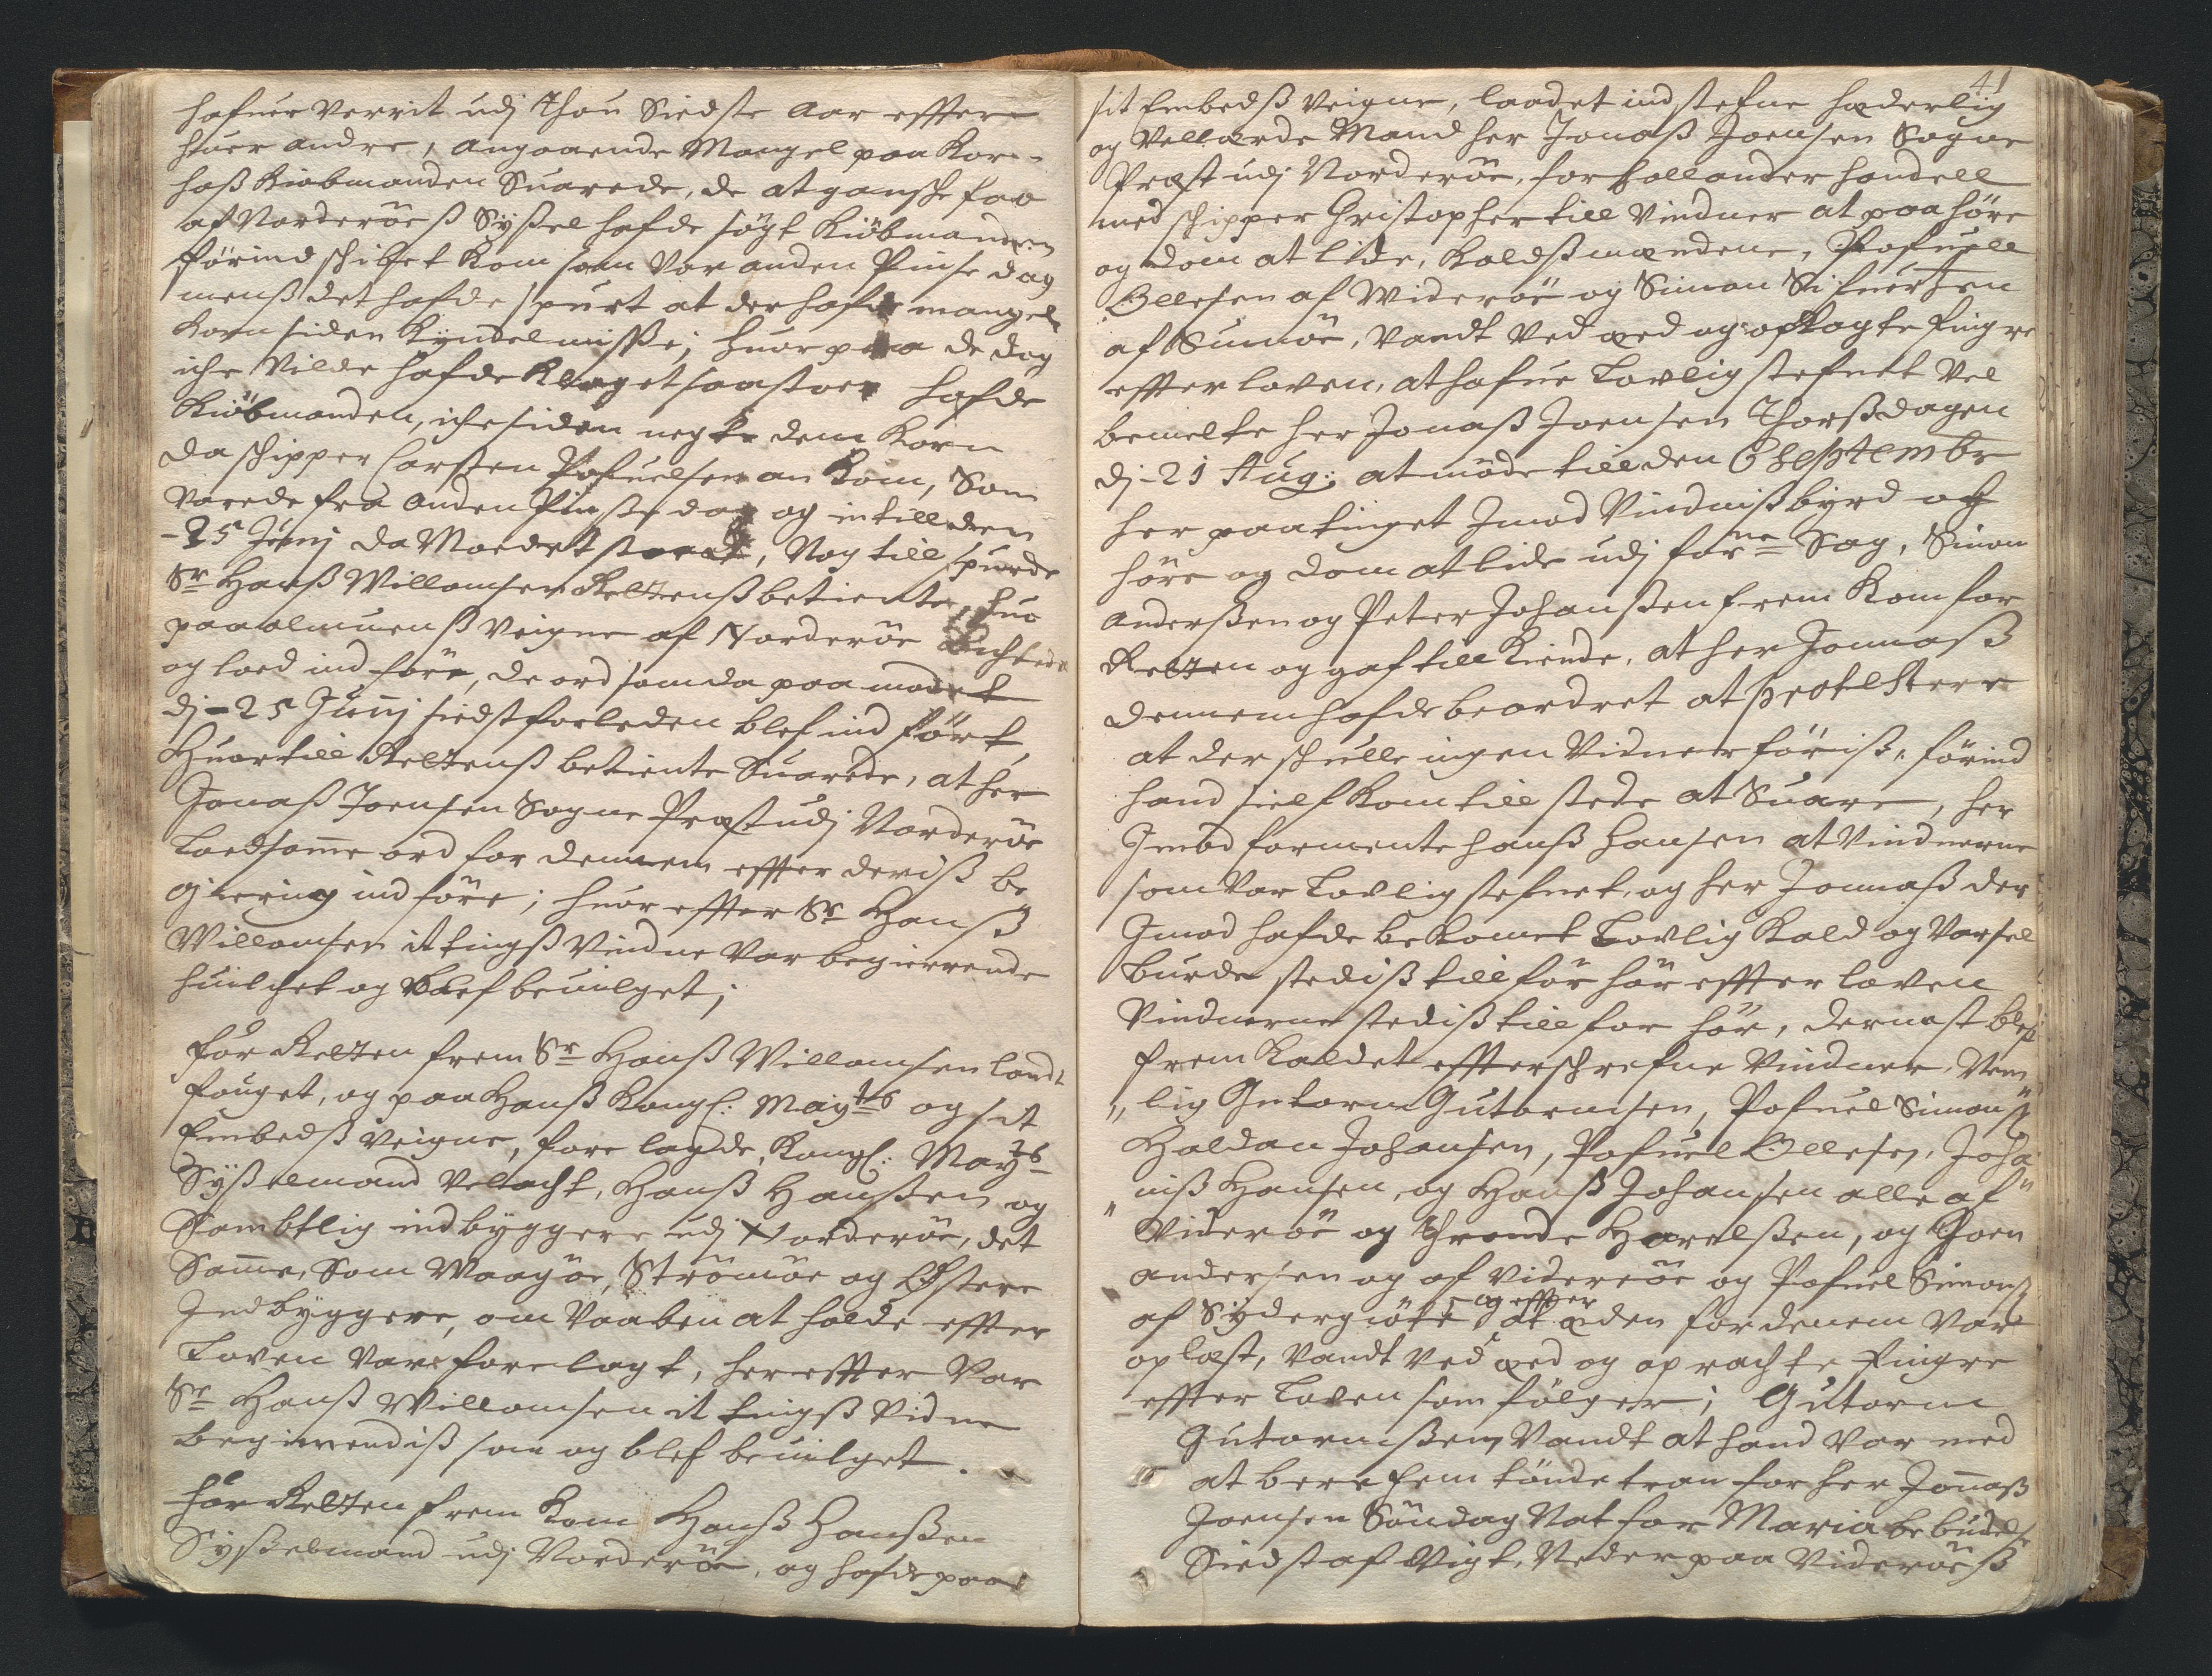 hafuer verrit udj thou Siedste Aar efftter
huer andre, angaaende Mangel paa Korn
hoß Kiøbmanden Suarede, de at gansche faa
af Norderöeß Sysßel hafde søgt Kiöbmanden
førind schibet Kom som var anden Pinse dag
menß det hafde spurt at der hafde mangelt
Korn siden Kyndelmisße; huor paa de dog
iche vilde hafde Klaget saasom hafde
Kiöbmanden, iche siden negte dem Korn
da schipper Carsten Pofuelsen an Kom, Som
varede fra anden Pinsße dag og intill den
-25 Junj da Moedet stoed, Nog till spurde
Sr Hanß Willomsen Rettenß betiente, huo
paa almuenß veigne af Norderöe
og loed ind føre, de ord som da paa mødet
dj -25 Junj siedst forleden blef ind ført
Huortill Rettenß betiente Suarede, at her
Jonaß Joensen Sogne Præst udj Norderöe
loed samme ord for dennem effter deriß be
giering ind före; huor effter Sr Hanß
Willomsen it tingß vindne var begierrende
huilchet og blef beuilget;
för Retten frem Sr Hanß Willomsen land
fouget, og paa Hanß Kongl: Maytts og sit
Embedß veigne, fore lagde, Kongl: Maytts
Sysßelmand velacht, Hanß Hansßen og
Sambtlig indbyggere udj Norderöe, det
Samme, Som Waagöe, Strömöe og Østere
Indbyggere, om vaaben at holde effter
Loven vare forelagt, her effter var
Sr Hanß Willomsen it tingß vidne
begierendiß som og blef beuilget.
för Retten frem Kom Hanß Hansßen
Sysßelmand udj Norderöe, og hafde paa
41
sit Embedß veigne, laadet ind stefne hæderlig
og Vellærde Mand her Jonaß Joensen Sogne
Præst udj Norderöe, for hollander handell
med schipper Christopher till vindner at paa høre
og dom at lide, Kaldßmændene, Pofuell
Ollesen af Widerøe og Simon Sifuertsen
af Suinöe, vandt ved æed og opragte fingre
effter loven, at hafue lovlig stefnet vel
bemelte her Jonaß Joensen Thorßdagen
dj -21 Aug: at møde till den 6 September
her paa tinget Jmod vindnißbyrd at
høre og dom at lide udj forne Sag, Simon
Andersßen og Peter Johansßen frem Kom for
Retten og gaf till kiende, at her Jonnaß
dennem hafde beordret at protestere
at der schulle ingen vidner föriß, förind
hand sielf Kom till stede at Suare, her
Jmod formente Hanß Hansen at vindnerne
som var Lovlig stefnet, og her Jonnaß der
Jmod hafde bekomet Lovlig Kald og varsel
burde stediß till för hör effter loven
vindnerne stediß till for hör, dernæst blef
frem Kaldet effterschrefne vindner, Nem
lig Guttorm Gutormsen, Pofuel Simonß
Haldan Johansen, Pofuel Ollesen, Joha
niß Hansen, og Hanß Johansen alle af
Videröe og Thronde Harelsßen, og Joen
Andersen og af videreöe og Pofuel Simonß
af Sydergiöte og effter at æden for dennem var
oplæst, vandt ved æed og oprachte fingre
effter Loven som fölger; Gutorm
Gutormsßen, vandt at hand var med
at bere fem tönde tran for her Jonaß
Joensen Söndag Nat for Maria bebudelß
Siedst af vigt, Neder paa Videröeß